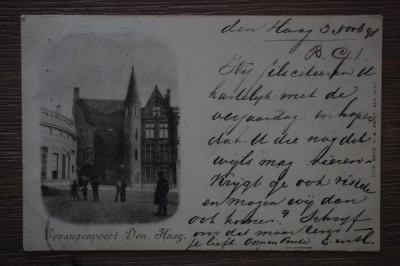 den Haag 3 Novb 98
B. C!.
Wij feliciteeren U
hartelijk met de
verjaardag en hopen
dat U die nog dik-
wijls mag vieren.
Krijgt ge ook visite
en mogen wij dan
ook komen? Schrijf
ons dat maar eens
je liefh. Oom en Tante
Gevangenpoort Den Haag.